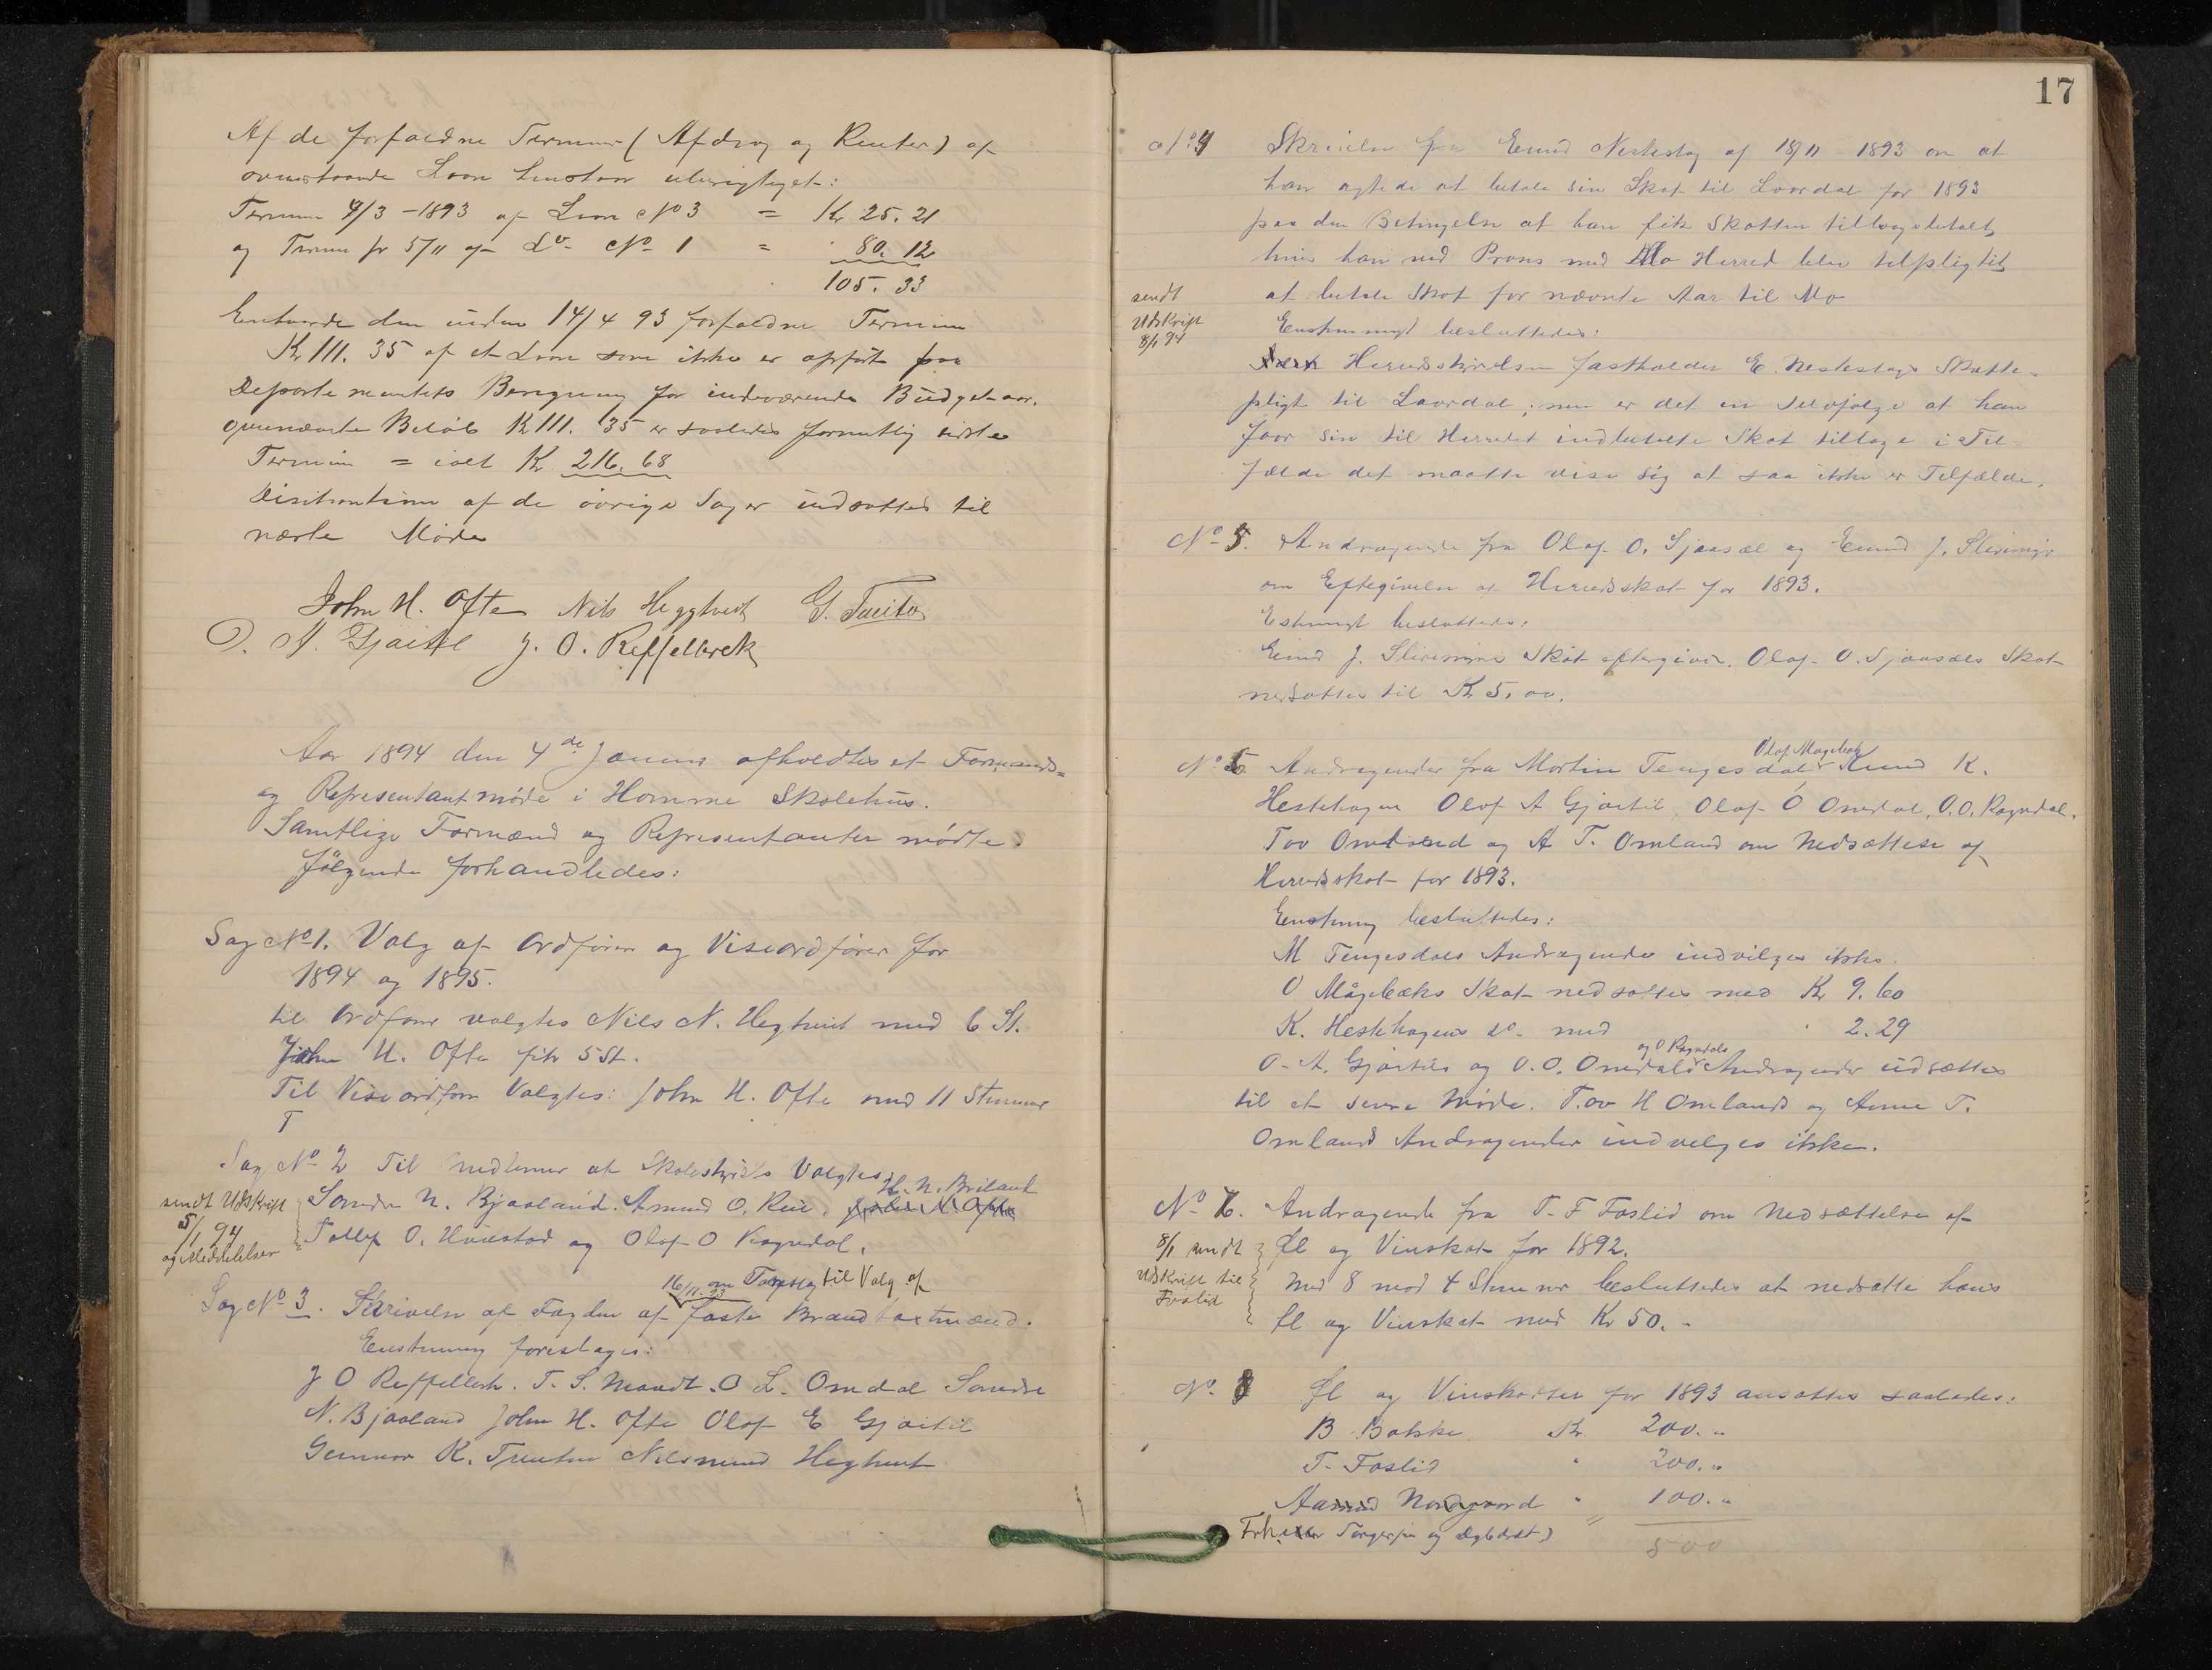 Af de forfaldne Terminer (Afdrag og Renter) af
ovenstaaende Laan henstaar uberigtiget:
Termin 4/3 - 1893 af Laan No 3 = Kr 25. 21
og Termin pr 5/11 af Do No 1 = 80. 12
105. 33
den siden 14/4 93 forfaldne Termin
Kr 111. 35 af et Laan som ikke er opført paa
Departementets Beregning for indeværende Budgetaar.
Beløb Kr 111. 35 er saaledes formentlig sidste
Termin = ialt Kr 216. 68
af de øvrige Sager udsattes til
næste Møde
John H. Ofte Nils Heggtveit G. Tveito
O. A. Gjaitil J. O. Reppelbrek
Aar 1894 den 4de Januar afholdtes et Formands=
og Representantmøde i Homme Skolehus.
Samtlige Formænd og Representanter mødte.
følgende forhandledes:
Sag No 1. Valg af Ordfører og Viseordfører for
1894 og 1895.
til Ordfører valgtes Nils N. Hegtveit med 6 St.
John H. Ofte fik 5 St.
Til Viseordfører Valgtes: John H. Ofte med 11 Stemmer
T
Sag No 2 Til Medlemer af Skolestyret Valgtes:
H. N. Briland
sendt Udskrift
5/1 94
og Meddelelser
Sondre N. Bjaaland. Amund O. Rui. John H Ofte
Tallef O. Haustad og Olaf O Ragndal.
16/11-93 om Forslag til Valg af
Sag No 3. Skrivelse af Fogden af faste Brandtaxtmænd.
Enstemmig foreslages:
J O Reppelbrek. T. S. Mandt. O L. Omdal Sondre
N. Bjaaland John H. Ofte Olaf E Gjaitil
Gunnar K. Tveiten Nils Hegtveit
17
No 4 Skrivelse fra Eivind Nestestog af 18/11 - 1893 om at
han agtede at betale sin Skat til Laardal for 1893
paa den Betingelse at han fik Skatten tilbagebetalt,
hvis han ved Proces med Mo Herred blev tilpligtet
at betale Skat for nævnte Aar til Mo
sendt
Udskrift
8/1 94
Enstemmigt besluttedes:
Herredsstyrelsen fastholder E. Nestestogs Skatte=
pligt til Laardal; men er det en Selvfølge at han
faar sin til Herredet indbetalte Skat tilbage i Til
fælde det maatte vise sig at saa ikke er Tilfælde.
No 5. Andragende fra Olaf O. Sjaasæl og Eivind J.
om Eftergivelse af Herredsskat for 1893.
Estemmigt besluttedes:
Eivind J. Skat eftergives. Olaf O. Sjaasæls Skat
nedsattes til Kr 5,00.
Olaf Magebæk
No 6. Andragender fra Martin Tengesdal Knud K.
Hestehagen Olaf A Gjaitil Olaf O Omdal, O. O. Ragndal,
Tov Omland og A T. Omland om Nedsættelse af
Herredsskat for 1893.
Enstemmig besluttedes:
M Tengesdals Andragende indvilges ikke.
O Mågebæks Skat nedsattes med Kr 9. 60
K. Hestehagens do med 2. 29
og O Ragndals
O. A. Gjaitils og O. O. Omdals Andragender udsættes
til et senere Møde. Tov H Omlands og Anne T.
Omlands Andragender indvelges ikke.
No 7. Andragende fra T. F Foslid om Nedsættelse af
8/1 sendt
Udskrift til
Foslid
Øl og Vinskat for 1892.
Med 8 mod 4 Stemmer besluttedes at nedsætte hans
Øl og Vinskat med Kr 50. -
No 8 Øl og Vinskatter for 1893 ansattes saaledes:
B Bakke Kr 200. "
T. Foslid " 200. "
Aasmund Nordgaard " 100. "
500